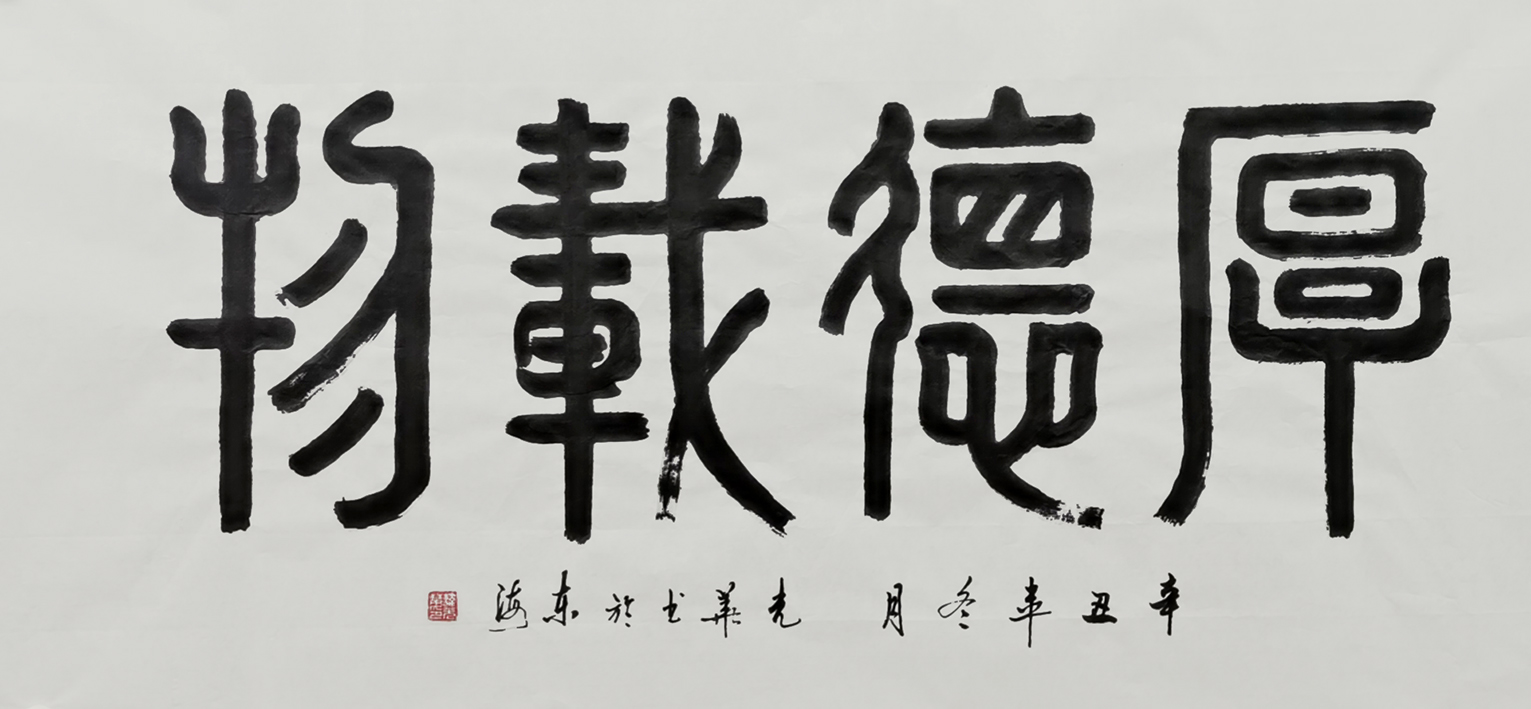 厚德載物
辛丑年冬月 光華书於东海